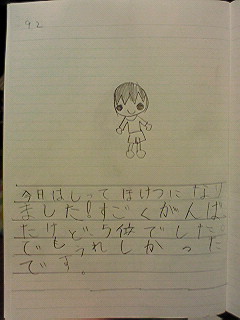 9.2
今日はしってほけつになり
ました!すごくがんば
たけど、5位でした
でもうれしかった
です。